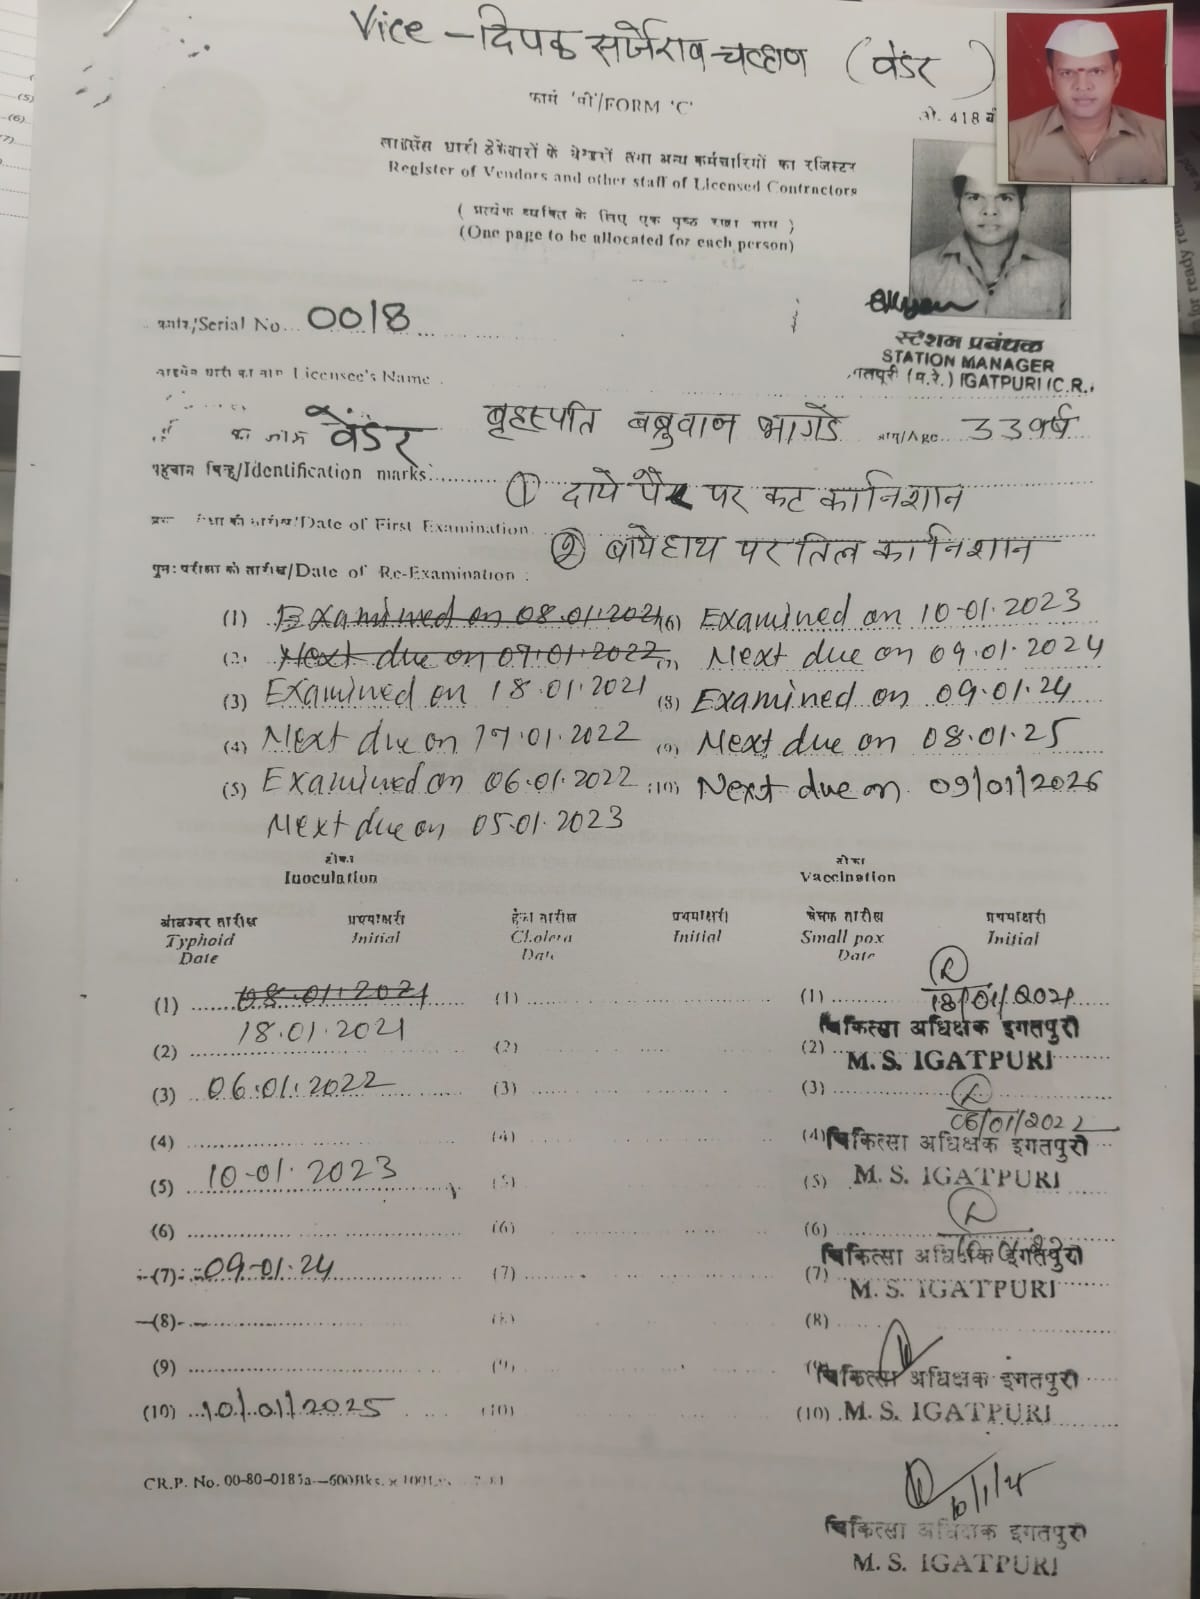 Vice - दिपक सर्जेराव चव्हाण (वेंडर)
फार्म 'सी'/FORM 'C'
418
लाइसेंस धारी ठेकेदारों के वेण्डरों तथा अन्य कर्मचारियों का रजिस्टर
Register of Vendors and other staff of Licensed Contractors
( प्रत्येक व्यक्ति के लिए एक पृष्ठ रखा जाय )
(One page to be allocated for each person)
/Serial No. 0018
स्टेशन प्रबंधक
STATION MANAGER
गतपुरी (म.रे.) IGATPURI (C.R.)
Licensee's Name
वेंडर बृहस्पति बब्रुवान भागडे आयु/Age 33 वर्ष
पहचान चिन्ह/Identification marks:
① दाये पैर पर कट का निशान
/Date of First Examination
② बाये हाथ पर तिल का निशान
पुनः परीक्षा की तारीख/Date of Re-Examination :
(1) Examined on 08.01.2021 (6) Examined on 10-01.2023
(2) Next due on 07.01.2022 (7) Next due on 09.01.2024
(3) Examined on 18.01.2021 (8) Examined on 09.01.24
(4) Next due on 17.01.2022 (9) Next due on 08.01.25
(5) Examined on 06.01.2022 (10) Next due on 09/01/2026
Next due on 05.01.2023
टीका टीका
Inoculation Vaccination
तारीख प्रथमाक्षरी हैजा तारीख प्रथमाक्षरी चेचक तारीख प्रथमाक्षरी
Typhoid Initial Cholera Initial Small pox Initial
Date Date Date
(1) 08.01.2021 (1) (1) 18/01/2021
18.01.2021 चिकित्सा अधिक्षक इगतपुरी
(2) (2) (2) M. S. IGATPURI
(3) 06.01.2022 (3) (3)
06/01/2022
(4) (4) (4) चिकित्सा अधिक्षक इगतपुरी
(5) 10-01.2023 (5) (5) M. S. IGATPURI
(6) (6) (6)
चिकित्सा अधिक्षक इगतपुरी
(7) 09-01.24 (7) (7) M. S. IGATPURI
(8) (8) (8)
(9) (9) (9) चिकित्सा अधिक्षक इगतपुरी
(10) 10/01/2025 (10) (10) M. S. IGATPURI
CR.P. No. 00-80-0185a
चिकित्सा अधिक्षक इगतपुरी
M. S. IGATPURI